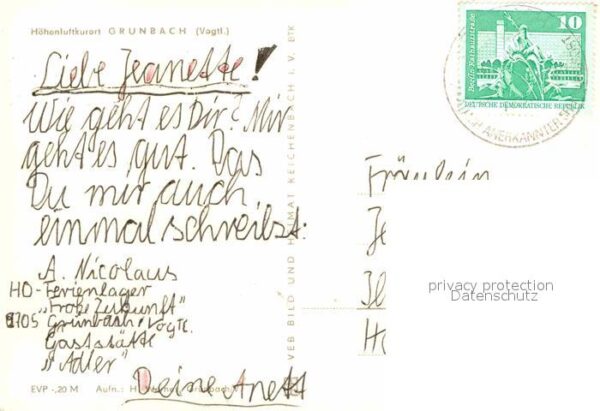 Höhenluftkurort GRÜNBACH (Vogtl.)
Liebe Jeanette!
Wie geht es Dir? Mir
geht es gut. Das
Du mir auch
einmal schreibst.
A. Nicolaus
HO-Ferienlager
"Frohe Zukunft"
9705 Grünbach/Vogtl.
Gaststätte
"Adler"
Deine Anett
EVP -,20 M Aufn.:
VEB BILD UND HEIMAT REICHENBACH I. V. BTK
10
Berlin, Rathausstraße
DEUTSCHE DEMOKRATISCHE REPUBLIK
ANERKANNTER
Fräulein
Je
Il
Ha
privacy protection
Datenschutz